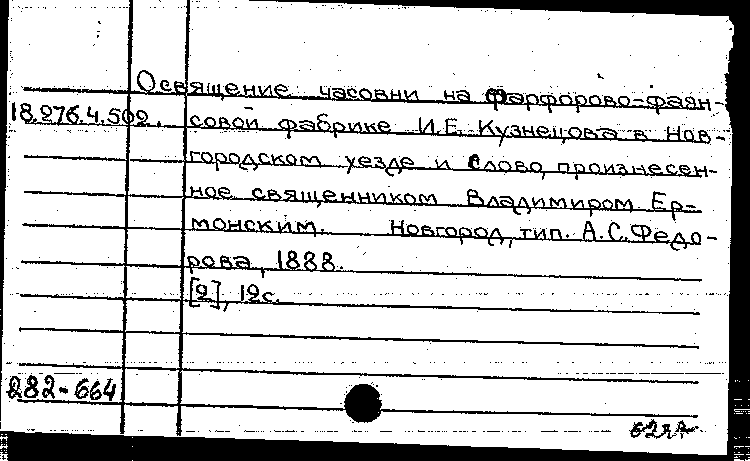 Освящение часовни на фарфорово-фаян-
18.276.4.502. совой фабрике И.Е. Кузнецова в Нов-
городском уезде и слово, произнесен-
ное священником Владимиром Ер-
монским. Новгород, тип. А.С. Федо-
рова, 1888.
[2], 12с.
282-664